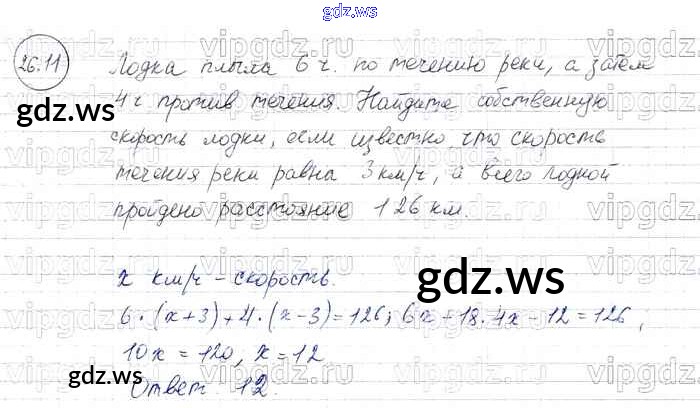 gdz.ws
26.11
Лодка плыла 6 ч. по течению реки, а затем
4 ч против течения. Найдите собственную
скорость лодки, если известно что скорость
течения реки равна 3 км/ч, а всего лодкой
пройдено расстояние 126 км.
x км/ч - скорость.
6·(x+3)+4·(x-3)=126; 6x+18·4x-12=126,
10x = 120, x = 12
Ответ. 12.
gdz.ws
gdz.ws
gdz.ws
gdz.ws
vipgdz.ru vipgdz.ru vipgdz.ru
vipgdz.ru vipgdz.ru vipgdz.ru